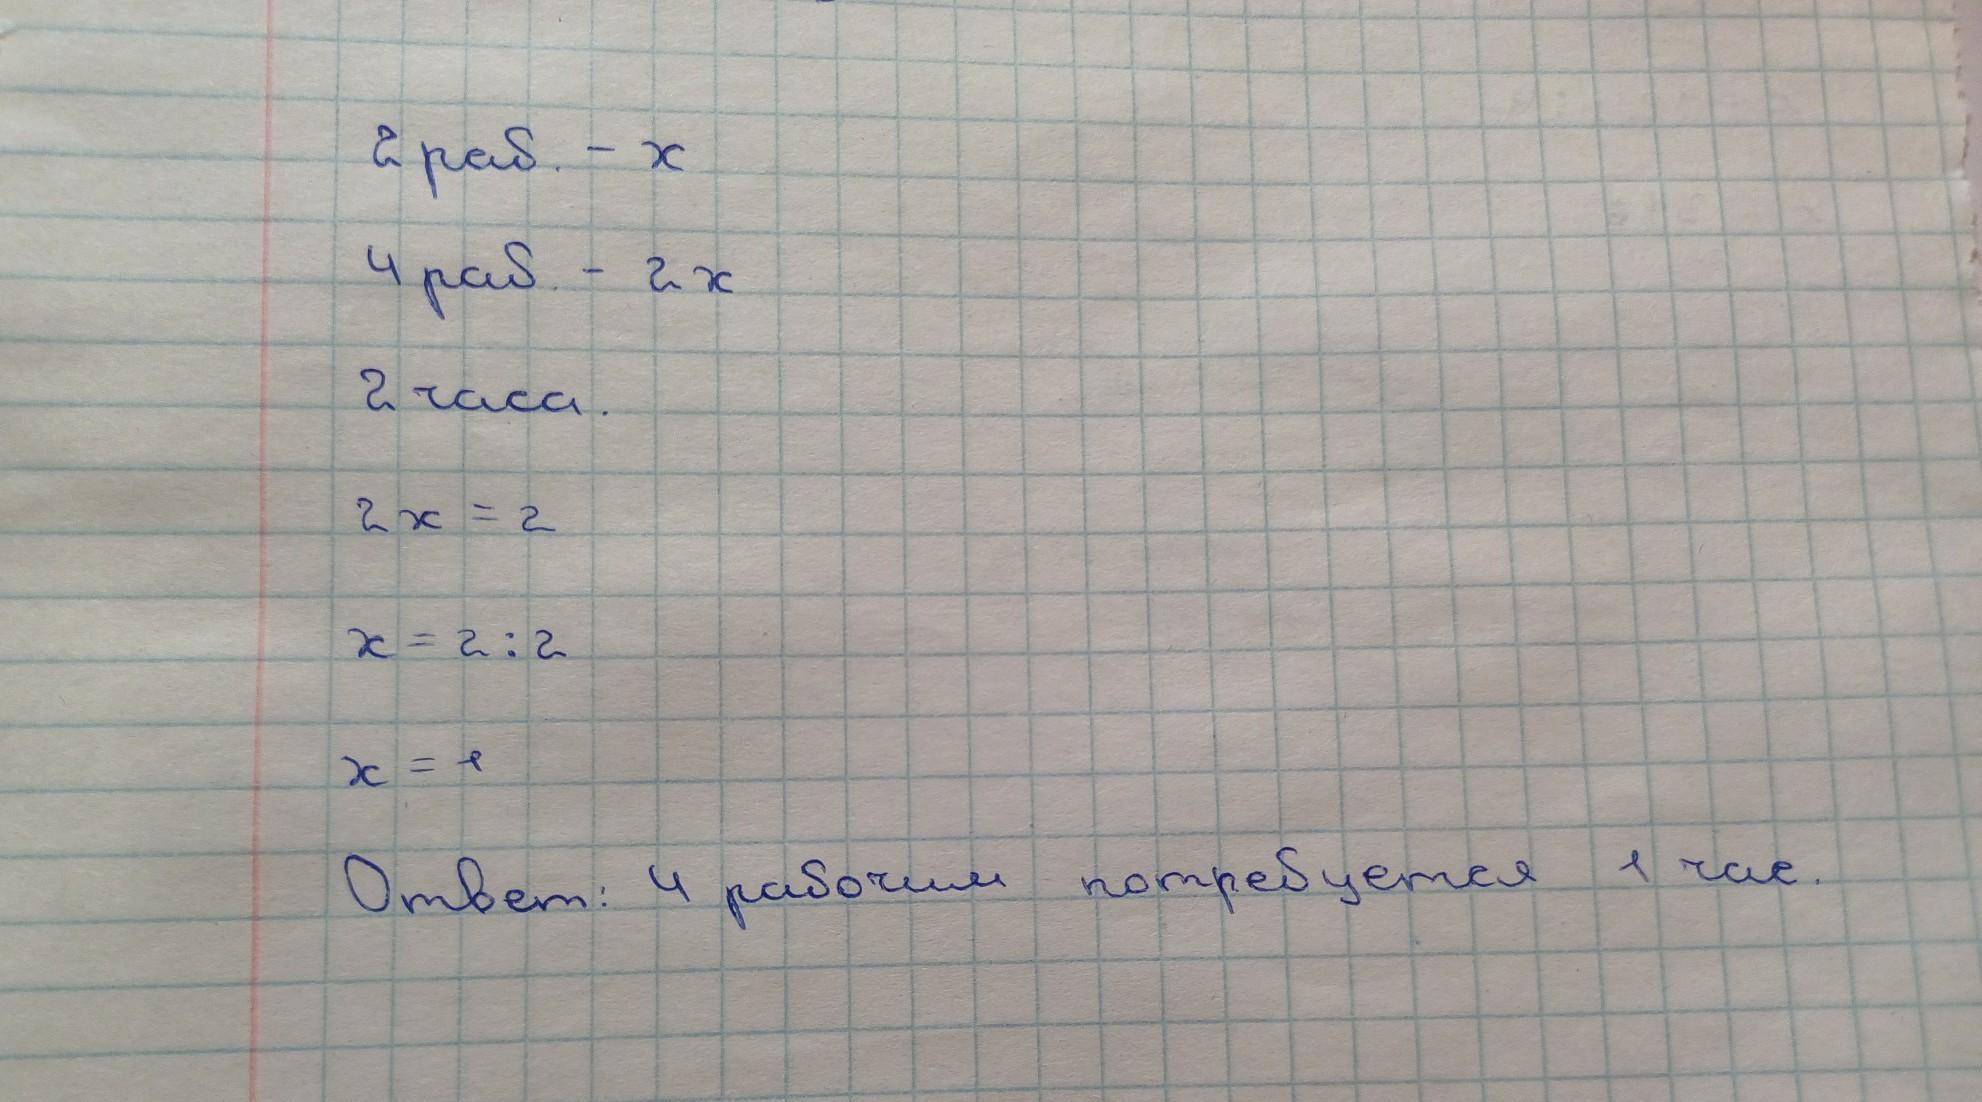 2 раб. - х
4 раб. - 2х
2 часа.
2х = 2
х = 2 : 2
х = 1
Ответ: 4 рабочим потребуется 1 час.